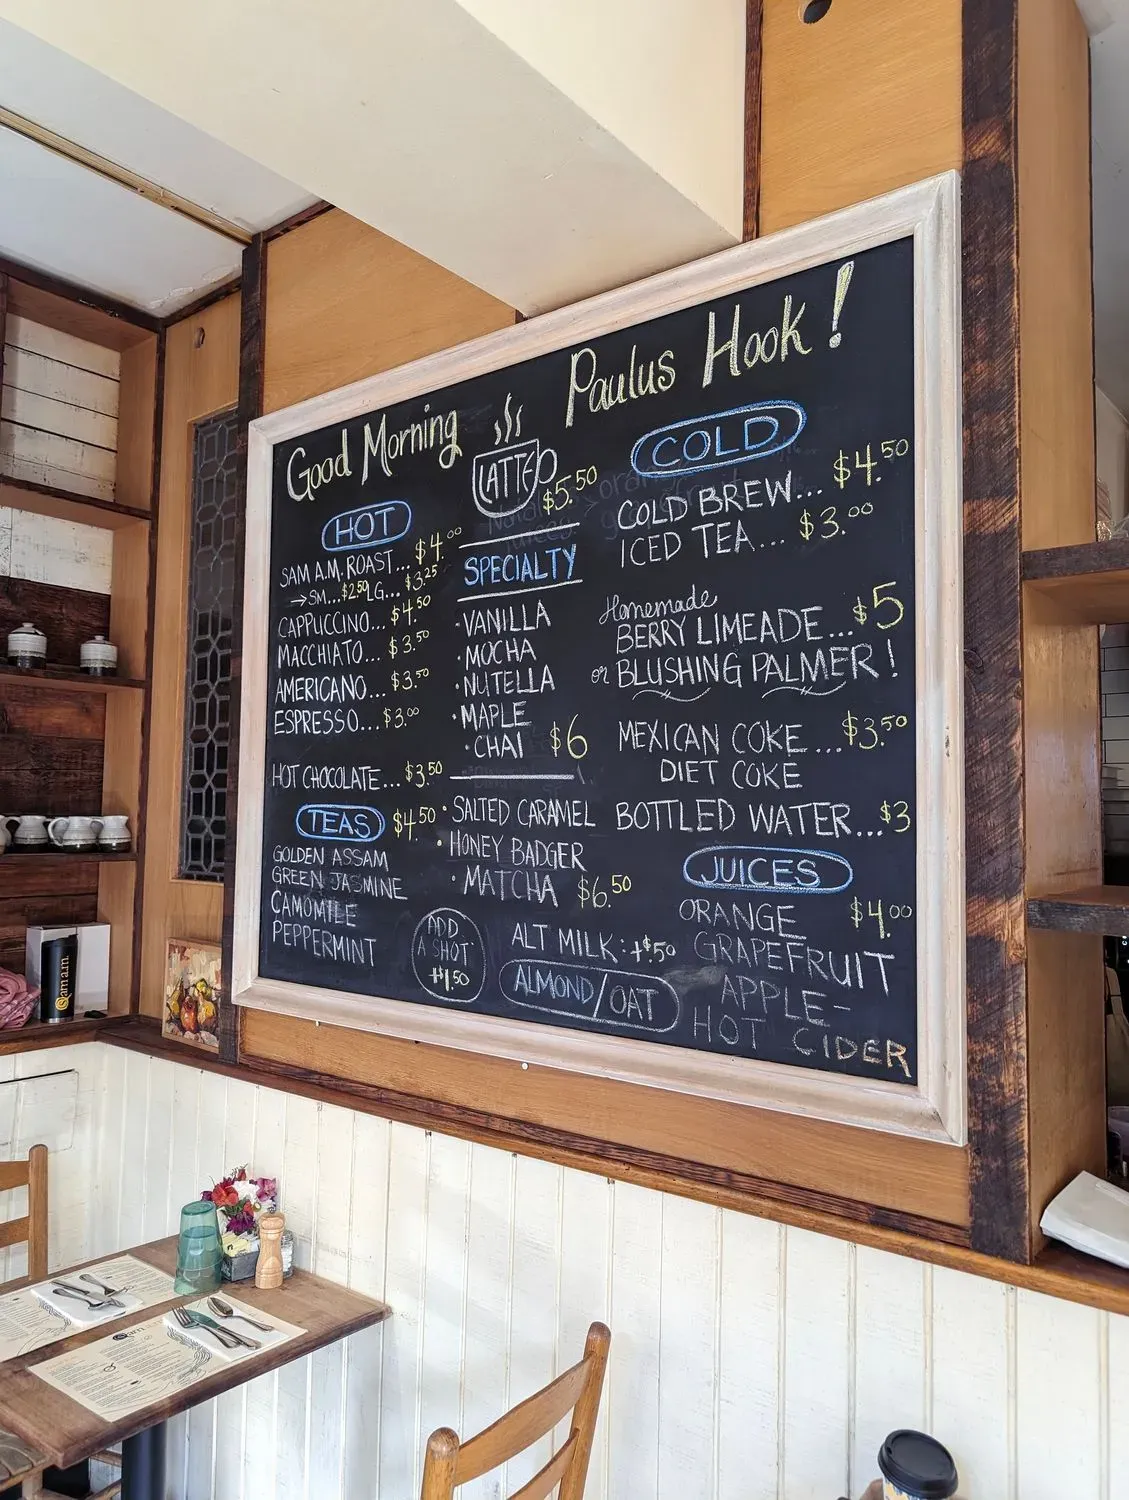 Good Morning Paulus Hook!
HOT
SAM A.M. ROAST... $4.00
→ SM...$2.50 LG... $3.25
CAPPUCCINO... $4.50
MACCHIATO... $3.50
AMERICANO... $3.50
ESPRESSO... $3.00
HOT CHOCOLATE... $3.50
TEAS $4.50
GOLDEN ASSAM
GREEN JASMINE
CAMOMILE
PEPPERMINT
LATTE
$5.50
SPECIALTY
• VANILLA
• MOCHA
• NUTELLA
• MAPLE
• CHAI $6
• SALTED CARAMEL
• HONEY BADGER
• MATCHA $6.50
ADD
A SHOT
+$1.50
ALT MILK: +$.50
ALMOND/OAT
COLD
COLD BREW... $4.50
ICED TEA... $3.00
Homemade
BERRY LIMEADE... $5
or BLUSHING PALMER!
MEXICAN COKE ... $3.50
DIET COKE
BOTTLED WATER... $3
JUICES
ORANGE $4.00
GRAPEFRUIT
APPLE-
HOT CIDER
am a.m.